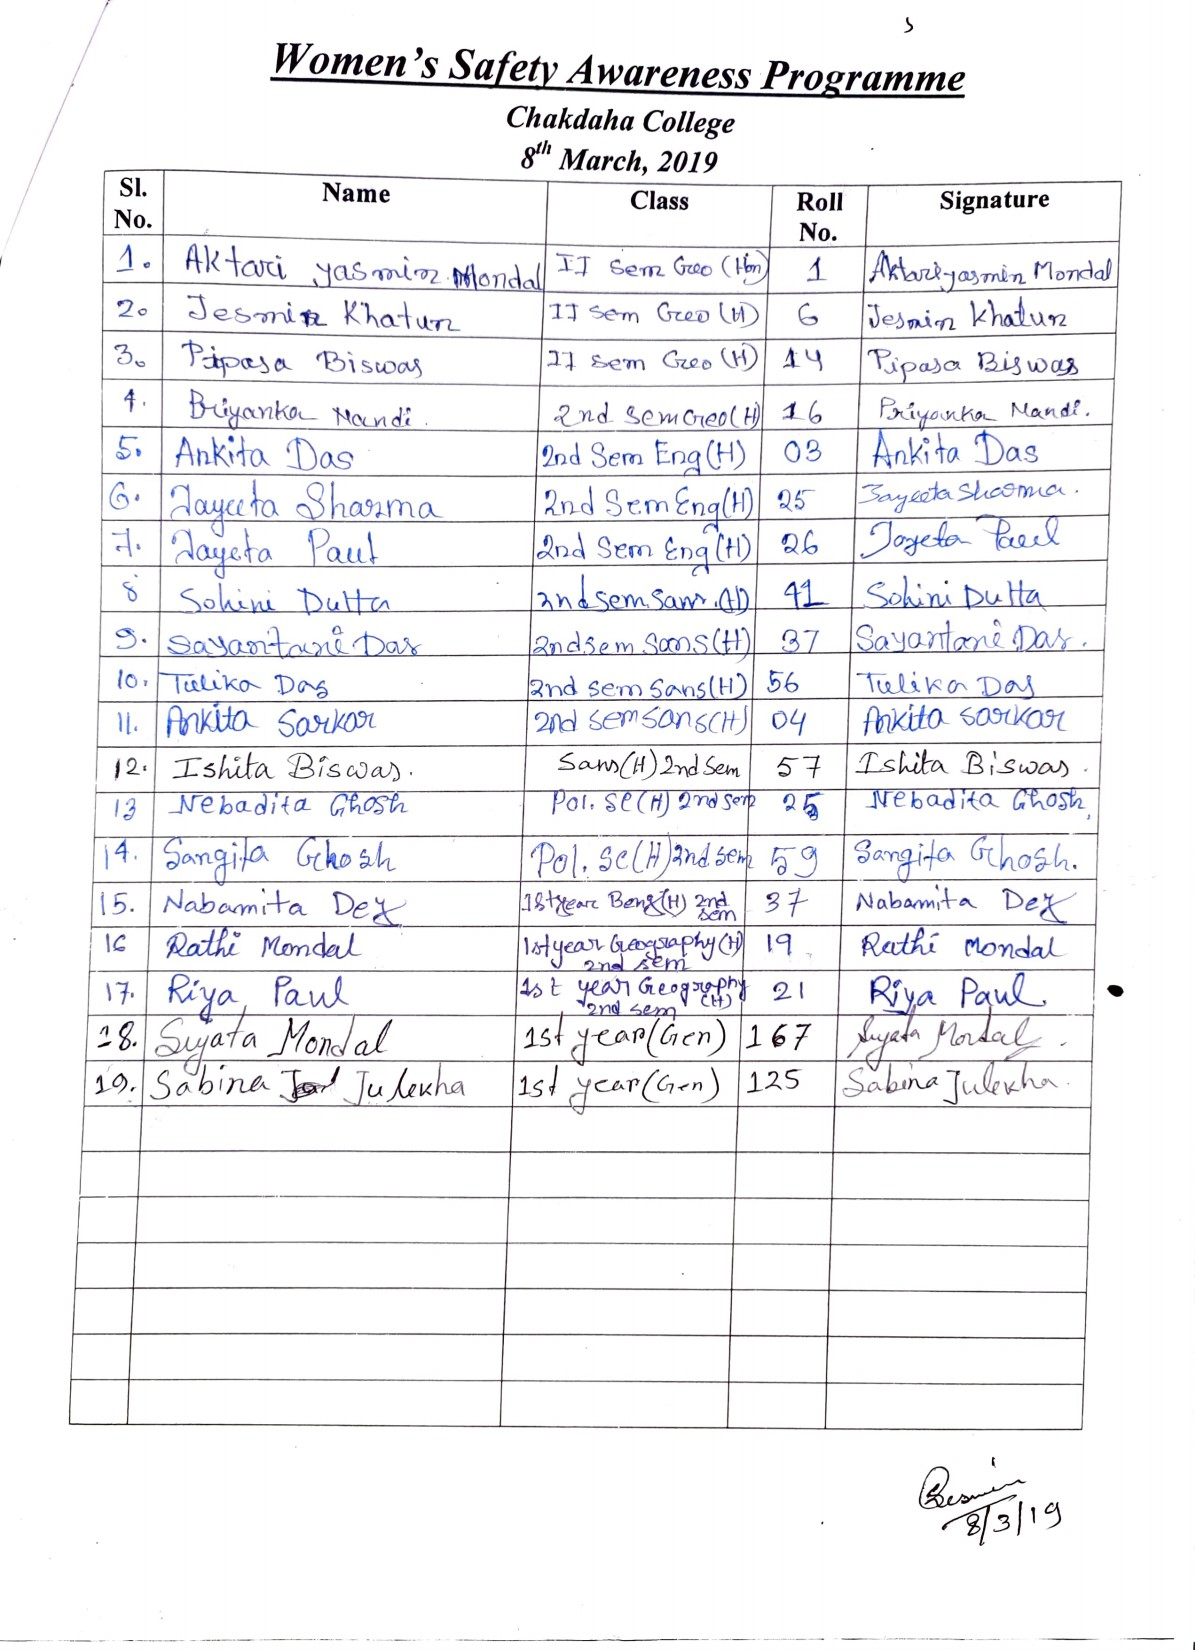 Women's Safety Awareness Programme
Chakdaha College
8th March, 2019
Sl. No. Name Class Roll No. Signature
1. Aktari yasmin Mondal II sem Geo (Hon) 1 Aktari yasmin Mondal
2. Jesmin Khatun II sem Geo (H) 6 Jesmin Khatun
3. Pipasa Biswas II sem Geo (H) 14 Pipasa Biswas
4. Briyanka Nandi. 2nd Sem Geo (H) 16 Priyanka Nandi.
5. Ankita Das 2nd Sem Eng (H) 03 Ankita Das
6. Jayeeta Sharma 2nd Sem Eng (H) 25 Jayeeta Sharma.
7. Jayeta Paul 2nd Sem Eng (H) 26 Jayeta Paul
8 Sohini Dutta 2nd sem. Sans. (H) 41 Sohini Dutta
9. Sayantani Das 2nd sem Sans (H) 37 Sayantani Das.
10. Tulika Das 2nd sem Sans (H) 56 Tulika Das
11. Ankita Sarkar 2nd sem Sans (H) 04 Ankita Sarkar
12. Ishita Biswas. Sans (H) 2nd Sem 57 Ishita Biswas.
13 Nebadita Ghosh Pol. Sc (H) 2nd sem 25 Nebadita Ghosh,
14. Sangita Ghosh Pol. Sc (H) 2nd sem 59 Sangita Ghosh.
15. Nabamita Dey 1st year Beng (H) 2nd sem 37 Nabamita Dey
16 Rathi Mondal 1st year Geography (H) 2nd sem 19 Rathi Mondal
17. Riya Paul 1st year Geography (H) 2nd sem 21 Riya Paul.
18. Sujata Mondal 1st year (Gen) 167 Sujata Mondal.
19. Sabina Julekha 1st year (Gen) 125 Sabina Julekha.
8/3/19